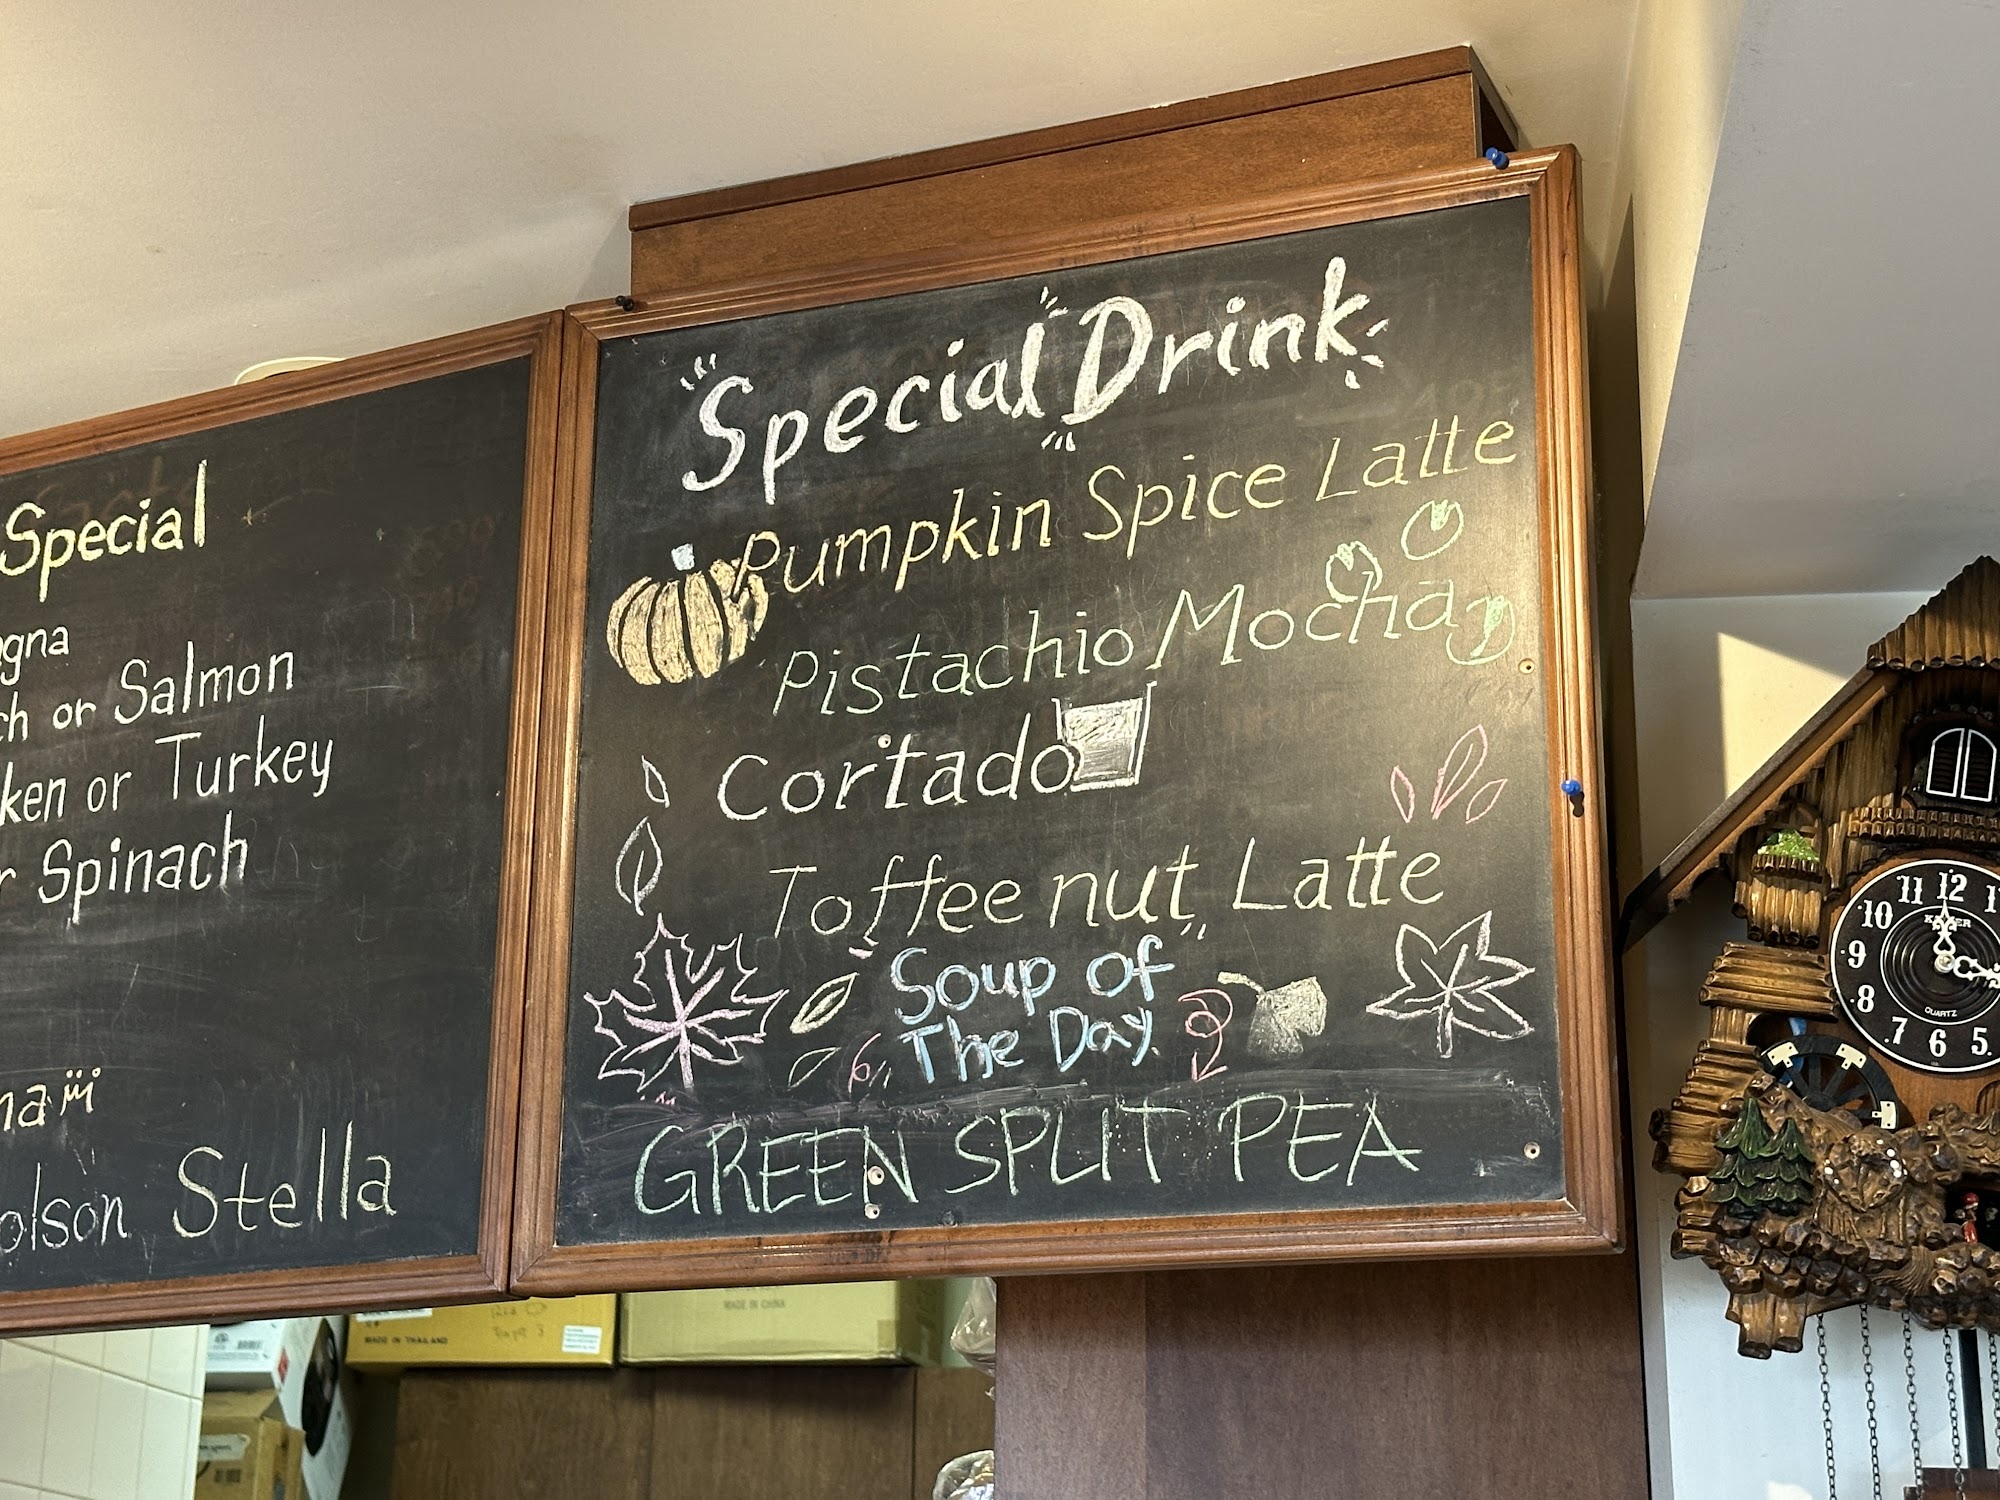 Special
or Salmon
or Turkey
Spinach
Stella
"Special Drink"
Pumpkin Spice Latte
Pistachio Mocha
Cortado
Toffee nut Latte
Soup of
The Day
GREEN SPLIT PEA
MADE IN THAILAND
MADE IN CHINA
11 12 1
10
9
8
7 6 5
QUARTZ